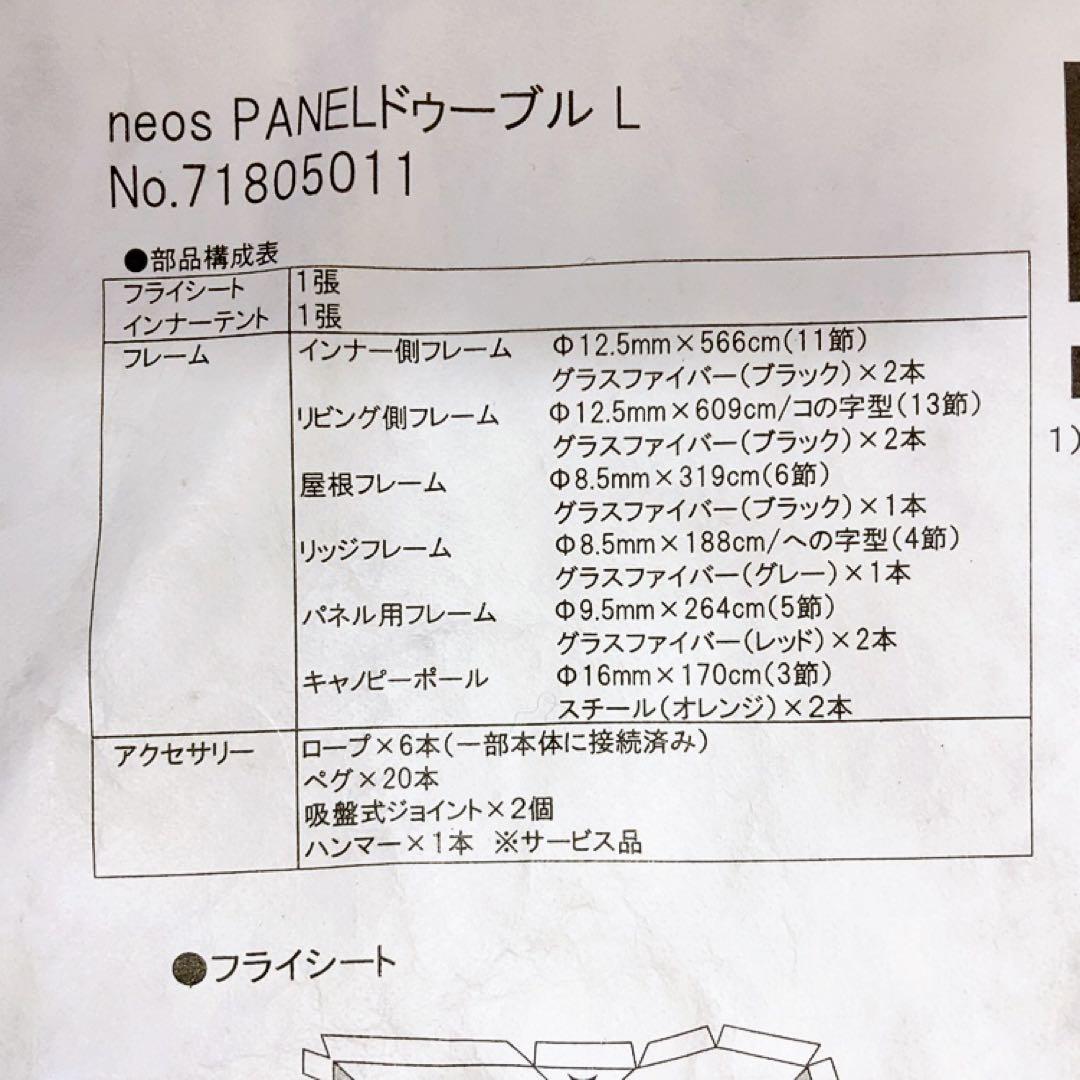 neos PANELドゥーブル L
No.71805011
●部品構成表
フライシート 1張
インナーテント 1張
フレーム インナー側フレーム Φ12.5mm×566cm(11節)
グラスファイバー(ブラック)×2本
リビング側フレーム Φ12.5mm×609cm/コの字型(13節)
グラスファイバー(ブラック)×2本
屋根フレーム Φ8.5mm×319cm(6節)
グラスファイバー(ブラック)×1本
リッジフレーム Φ8.5mm×188cm/への字型(4節)
グラスファイバー(グレー)×1本
パネル用フレーム Φ9.5mm×264cm(5節)
グラスファイバー(レッド)×2本
キャノピーポール Φ16mm×170cm(3節)
スチール(オレンジ)×2本
アクセサリー ロープ×6本(一部本体に接続済み)
ペグ×20本
吸盤式ジョイント×2個
ハンマー×1本 ※サービス品
●フライシート
1)